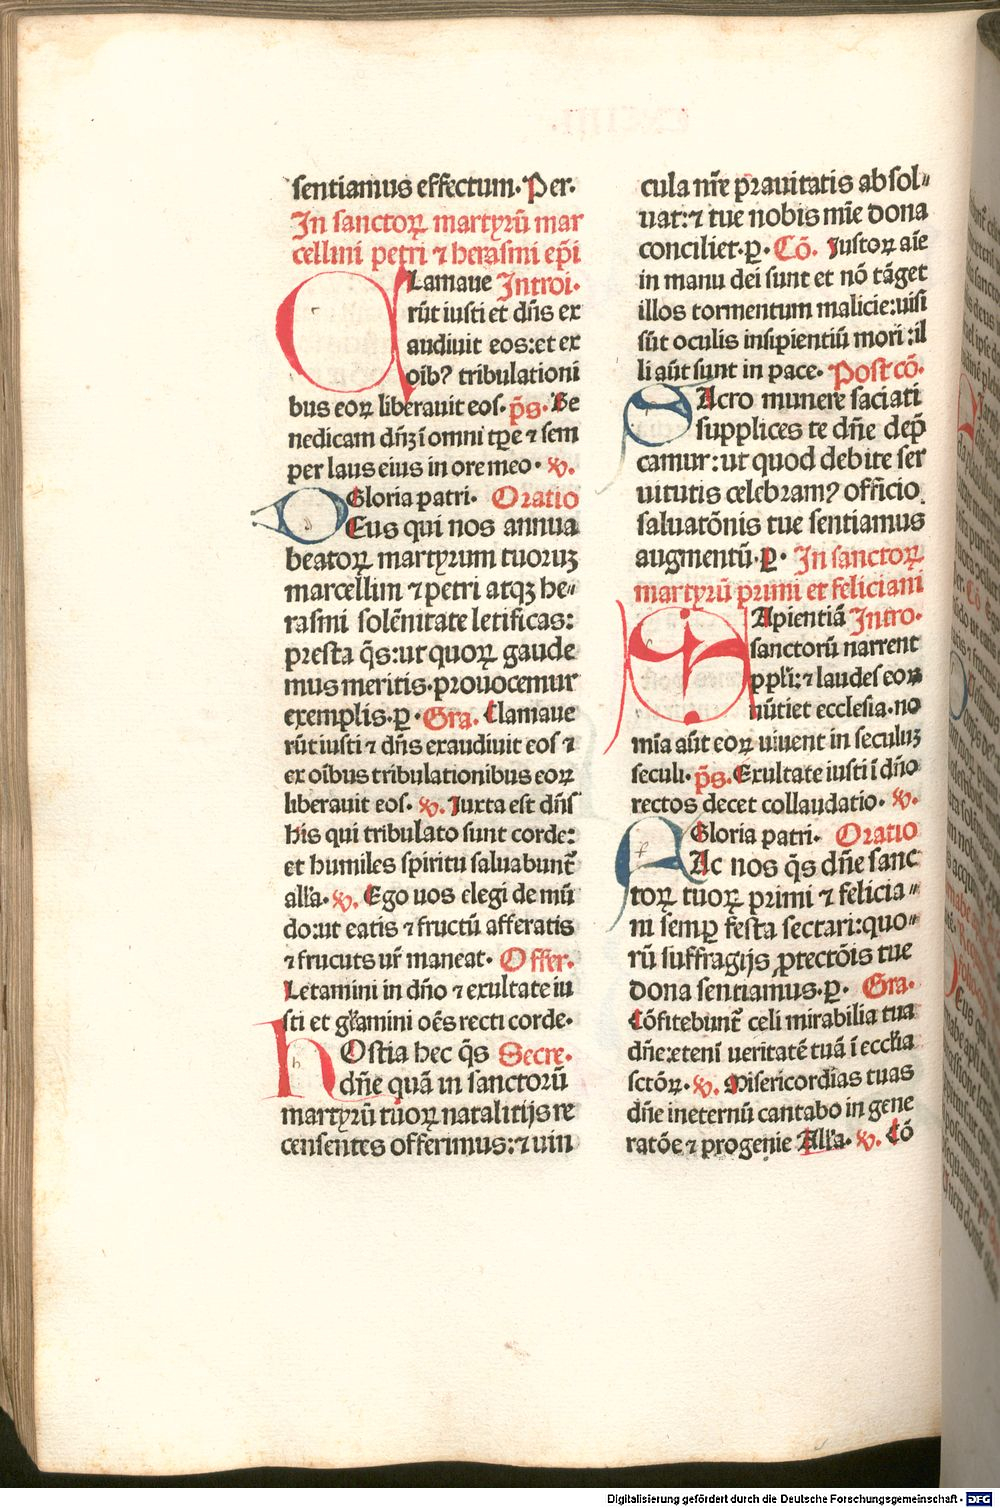 sentiamus effectum. Per.
In sanctoꝝ martyrū mar
cellini petri ⁊ herasmi ep̄i
Clamaue Introi.
rūt iusti et dn̄s ex
audiuit eos: et ex
oib? tribulationi
bus eoꝝ liberauit eos. p̄s. Be
nedicam dn̄ꝫ ī omni tꝑe ⁊ sem
per laus eius in ore meo. v.
Gloria patri. Oratio
Deus qui nos annua
beatoꝝ martyrum tuoruꝫ
marcellini ⁊ petri atqꝫ he⸗
rasmi solēnitate letificas:
presta q̄s: ut quoꝝ gaude
mus meritis. prouocemur
exemplis. ꝑ. Gra. Clamaue
rūt iusti ⁊ dn̄s exaudiuit eos ⁊
ex oībus tribulationibus eoꝝ
liberauit eos. v. Iuxta est dn̄s
his qui tribulato sunt corde:
et humiles spiritu saluabunt᷑
all'a. v. Ego uos elegi de mū
do: ut eatis ⁊ fructū afferatis
⁊ frucuts ur̄ maneat. Offer.
Letamini in dn̄o ⁊ exultate iu
sti et gl'amini oēs recti corde.
Hostia hec q̄s Secre.
dn̄e quā in sanctorū
martyrū tuoꝝ natalitijs re
censentes offerimus: ⁊ uin
cula nr̄e prauitatis absol⸗
uat: ⁊ tue nobis mīe dona
conciliet. ꝑ. Cō. Iustoꝝ aīe
in manu dei sunt et nō tāget
illos tormentum malicie: uisi
sūt oculis insipientiū mori: il
li aūt sunt in pace. Post cō.
Sacro munere saciati
supplices te dn̄e dep̄
camur: ut quod debite ser
uitutis celebram? officio
saluatōnis tue sentiamus
augmentū. ꝑ. In sanctoꝝ
martyrū primi et feliciani
Sapientiā Intro.
sanctorū narrent
ppl'i: ⁊ laudes eoꝝ
nūtiet ecclesia. no
mīa aūt eoꝝ uiuent in seculuꝫ
seculi. p̄s. Exultate iusti ī dn̄o
rectos decet collaudatio. v.
Gloria patri. Oratio
Fac nos q̄s dn̄e sanc
toꝝ tuoꝝ primi ⁊ felicia⸗
ni semꝑ festa sectari: quo⸗
rū suffragijs ꝓtectōis tue
dona sentiamus. ꝑ. Gra.
Cōfitebunt᷑ celi mirabilia tua
dn̄e: etenī ueritatē tuā ī eccl'ia
sctōꝝ. v. Misericordias tuas
dn̄e in eternū cantabo in gene
ratōe ⁊ progenie All'a. v. Cō
Digitalisierung gefördert durch die Deutsche Forschungsgemeinschaft - DFG